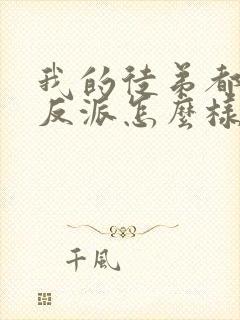 我的徒弟都
反派怎麼樣
千風